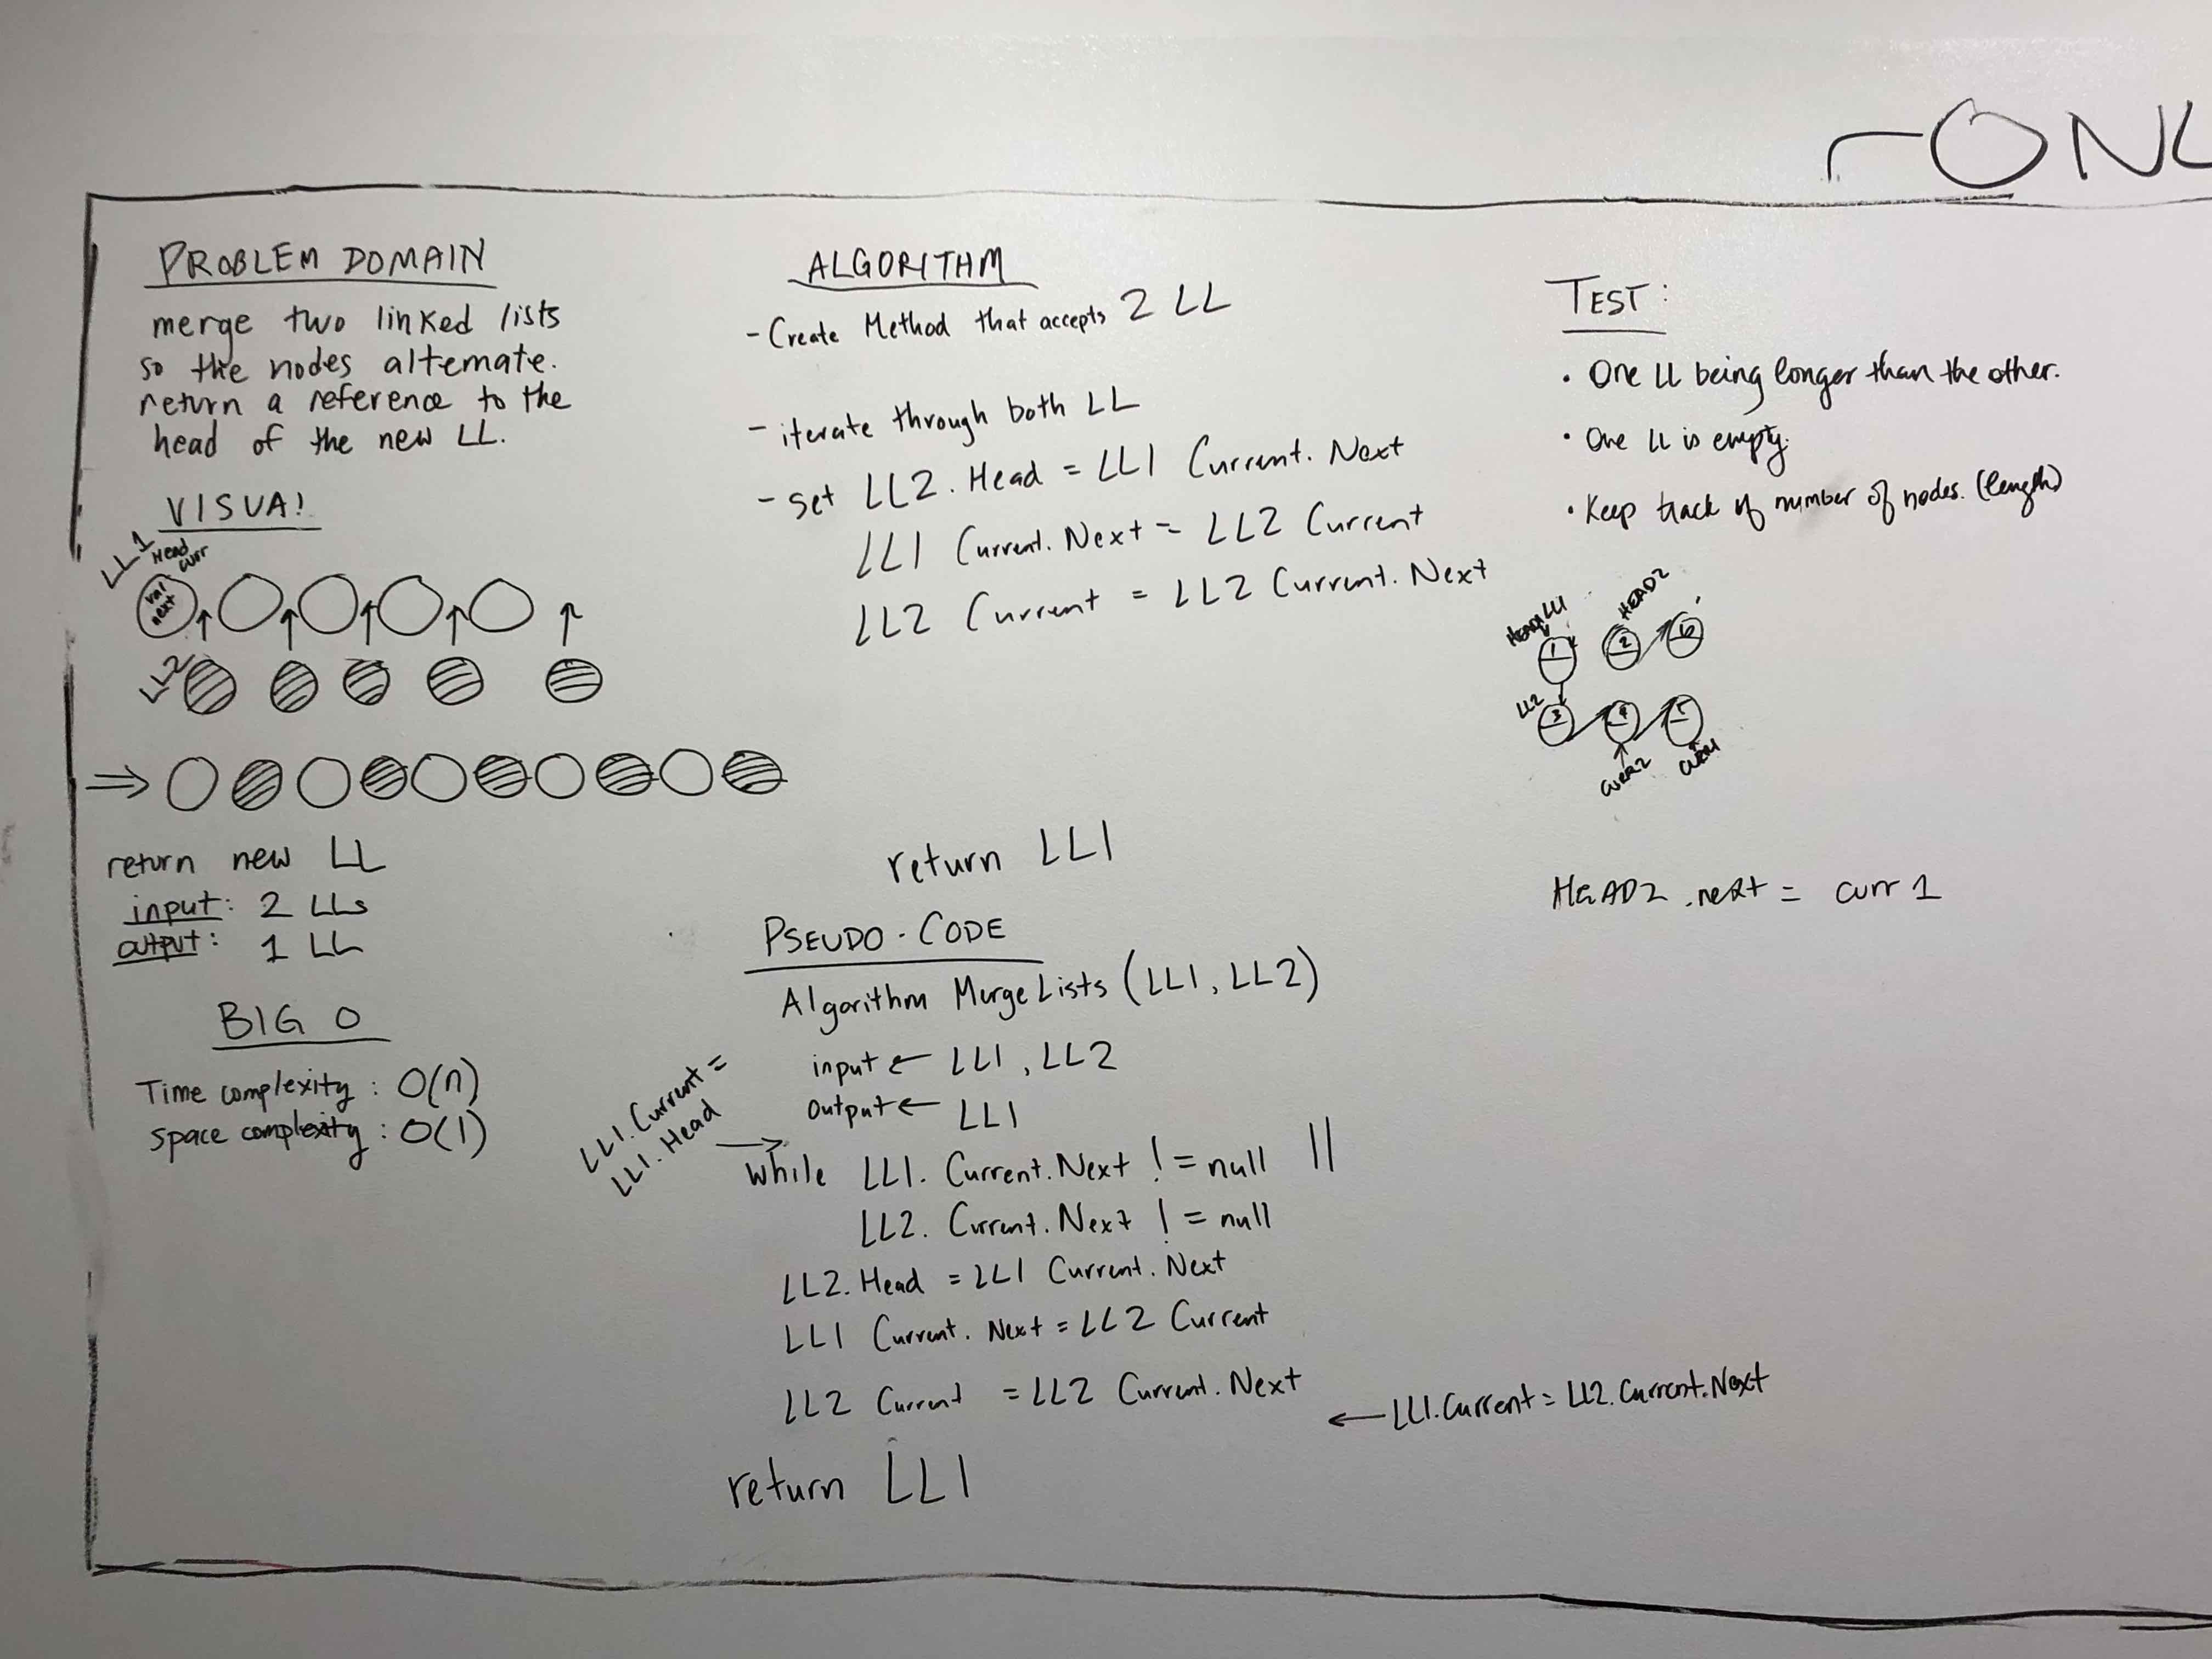 ONL
PROBLEM DOMAIN
merge two linked lists
so the nodes alternate.
return a reference to the
head of the new LL.
VISUAL
LL1
Head
curr
val
next
LL2
return new LL
input: 2 LLs
output: 1 LL
BIG O
Time complexity: O(n)
space complexity: O(1)
ALGORITHM
- Create Method that accepts 2 LL
- iterate through both LL
- set LL2. Head = LL1 Current. Next
LL1 Current. Next = LL2 Current
LL2 Current = LL2 Current. Next
return LL1
PSEUDO-CODE
Algorithm MergeLists (LL1, LL2)
input ← LL1, LL2
output ← LL1
LL1. Current =
LL1. Head →
while LL1. Current. Next != null ||
LL2. Current. Next != null
LL2. Head = LL1 Current. Next
LL1 Current. Next = LL2 Current
LL2 Current = LL2 Current. Next
← LL1.Current = LL2.Current.Next
return LL1
TEST:
• One LL being longer than the other.
• One LL is empty.
• Keep track of number of nodes. (length)
HEAD1 LL1
HEAD2
1 2 6
LL2
3 4 5
curr2 curr1
HEAD2 .next = curr 1